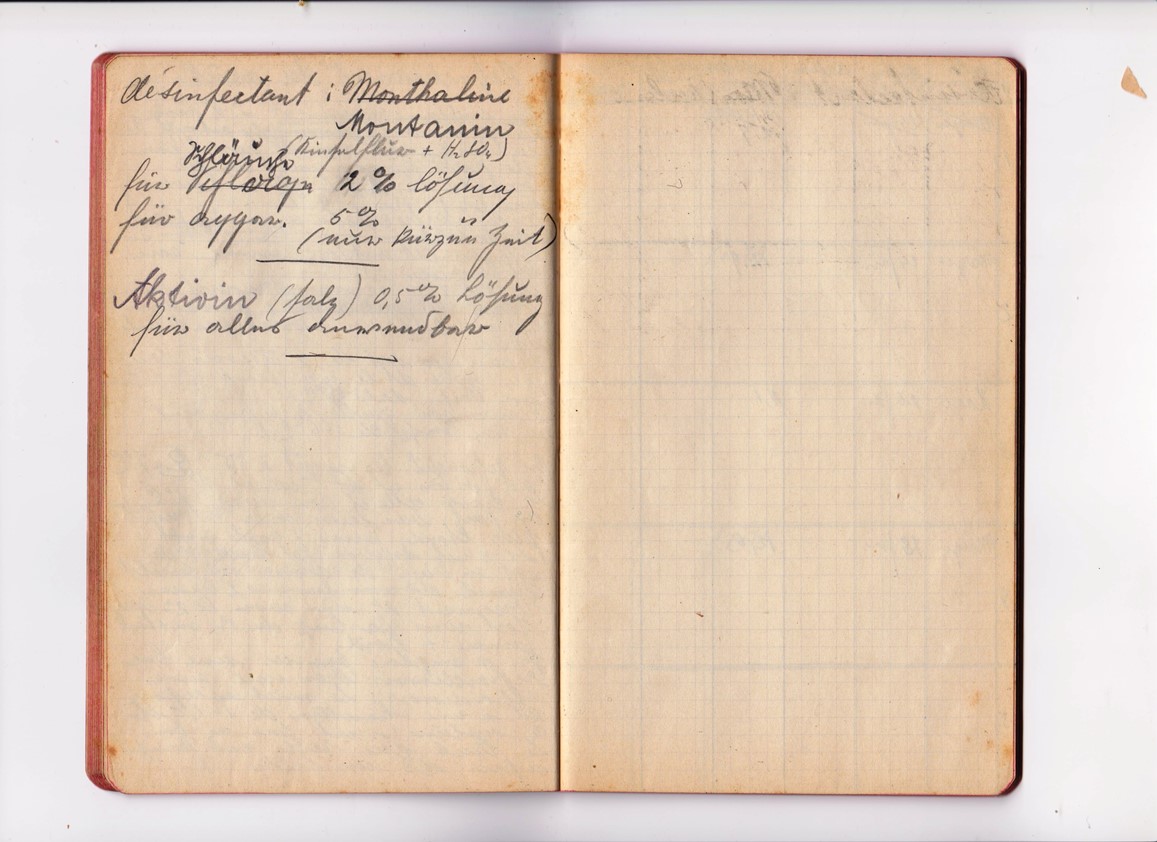 désinfectant : Monthaline
Montanin
Schläuche (Kieselfluor + H₂SO₄)
für 2% lösung
für appar. 5%
(nur kürzere Zeit)
Aktivin (salz) 0,5% Lösung
für alles anwendbar